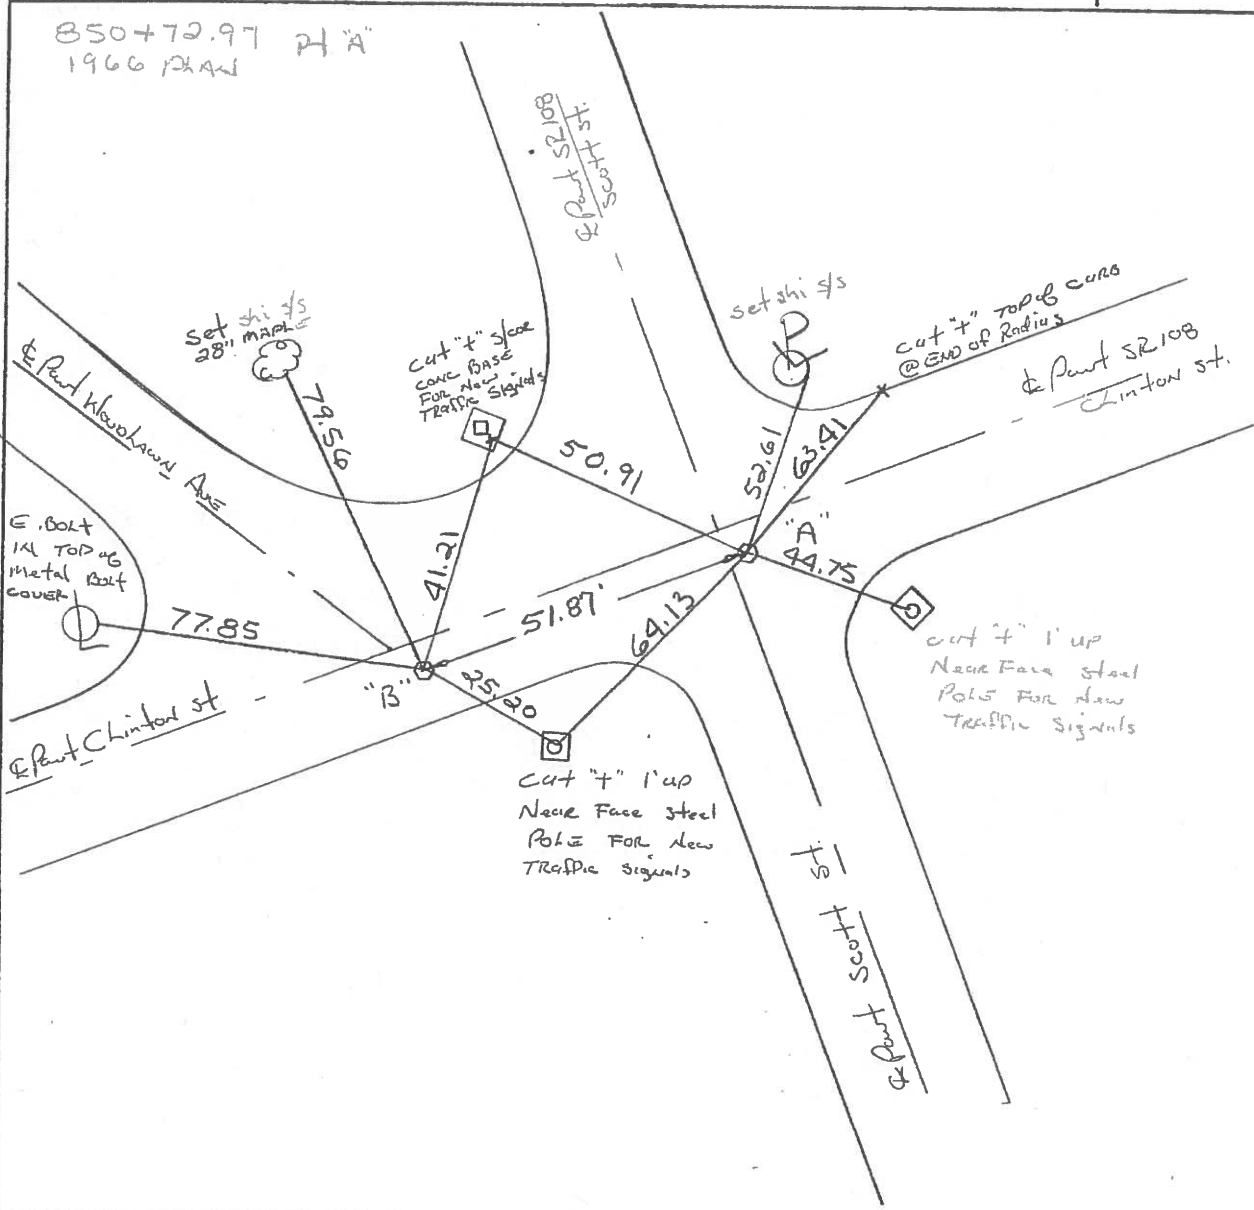 850+72.97 Pt "A"
1966 PLAN
℄ Pavt SR 108
Scott St.
set shi s/s
28" MAPLE
cut "+" s/cor
CONC BASE
FOR New
Traffic Signals
set shi s/s
P
cut "+" TOP of CURB
@ END of Radius
℄ Pavt SR 108
Clinton St.
℄ Pavt Woodlawn Ave
79.56
50.91
52.61
63.41
"A"
44.75
E. Bolt
IN TOP of
Metal Bolt
COVER
L
77.85
41.21
51.87'
64.13
"B"
25.20
℄ Pavt Clinton St
cut "+" 1' up
Near Face steel
Pole For New
Traffic Signals
cut "+" 1' up
Near Face steel
Pole For New
Traffic Signals
℄ Pavt Scott St.